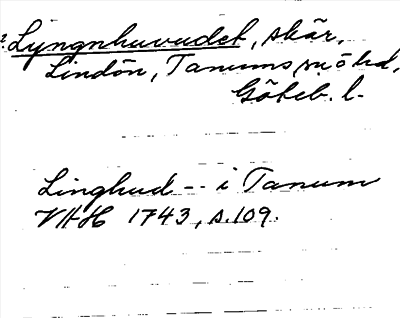 Lyngnhuvudet, skär,
Lindön, Tanums sn ö hd,
Göteb. l.
Linghud -- i Tanum
VHH 1743, s. 109.